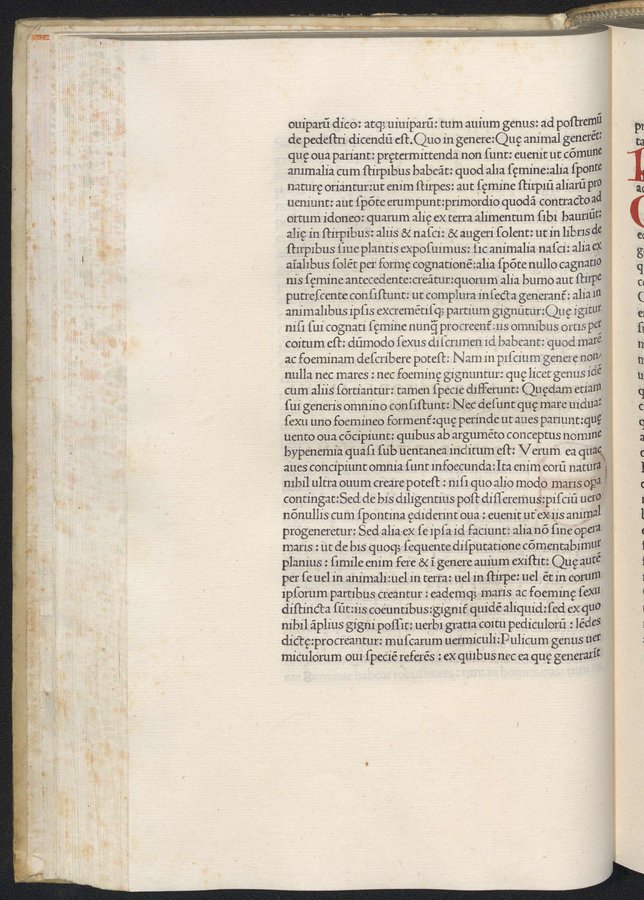 ouiparū dico: atq; uiuiparū: tum auium genus: ad postremū
de pedestri dicendū est. Quo in genere: Quę animal generēt:
quę oua pariant: prętermittenda non sunt: euenit ut cōmune
animalia cum stirpibus habeāt: quod alia sęmine: alia sponte
naturę oriantur: ut enim stirpes: aut sęmine stirpiū aliarū pro
ueniunt: aut spōte erumpunt: primordio quodā contracto ad
ortum idoneo: quarum alię ex terra alimentum sibi hauriūt:
alię in stirpibus: aliis & nasci: & augeri solent: ut in libris de
stirpibus siue plantis exposuimus: sic animalia nasci: alia ex
aīalibus solēt per formę cognationē: alia spōte nullo cagnatio
nis sęmine antecedente: creātur: quorum alia humo aut stirpe
putrescente consistunt: ut complura insecta generant̄: alia in
animalibus ipsis excremētisq; partium gignūtur: Quę igitur
nisi sui cognati sęmine nunq̄ procreent̄: iis omnibus ortis per
coitum est: dūmodo sexus discrimen id habeant: quod marē
ac foeminam describere potest: Nam in piscium genere non/
nulla nec mares: nec foeminę gignuntur: quę licet genus idē
cum aliis sortiantur: tamen specie differunt: Quędam etiam
sui generis omnino consistunt: Nec desunt quę mare uidua:
sexu uno foemineo forment̄: quę perinde ut aues pariunt: quę
uento oua cōcipiunt: quibus ab argumēto conceptus nomine
hypenemia quasi sub uentanea inditum est: Verum ea quae
aues concipiunt omnia sunt infoecunda: Ita enim eorū natura
nihil ultra ouum creare potest: nisi quo alio modo maris opa
contingat: Sed de his diligentius post disseremus: pisciū uero
nōnullis cum spontina ędiderint oua: euenit ut ex iis animal
progeneretur: Sed alia ex se ipsa id faciunt: alia nō sine opera
maris: ut de his quoq; sequente disputatione cōmentabimur
planius: simile enim fere & ī genere auium existit: Quę autē
per se uel in animali: uel in terra: uel in stirpe: uel ēt in eorum
ipsorum partibus creantur: eademq; maris ac foeminę sexu
distincta sūt: iis coeuntibus: gignit̄ quidē aliquid: sed ex quo
nihil āplius gigni possit: uerbi gratia coitu pediculorū: lēdes
dictę: procreantur: muscarum uermiculi: Pulicum genus uer
miculorum oui speciē referēs: ex quibus nec ea quę generarīt